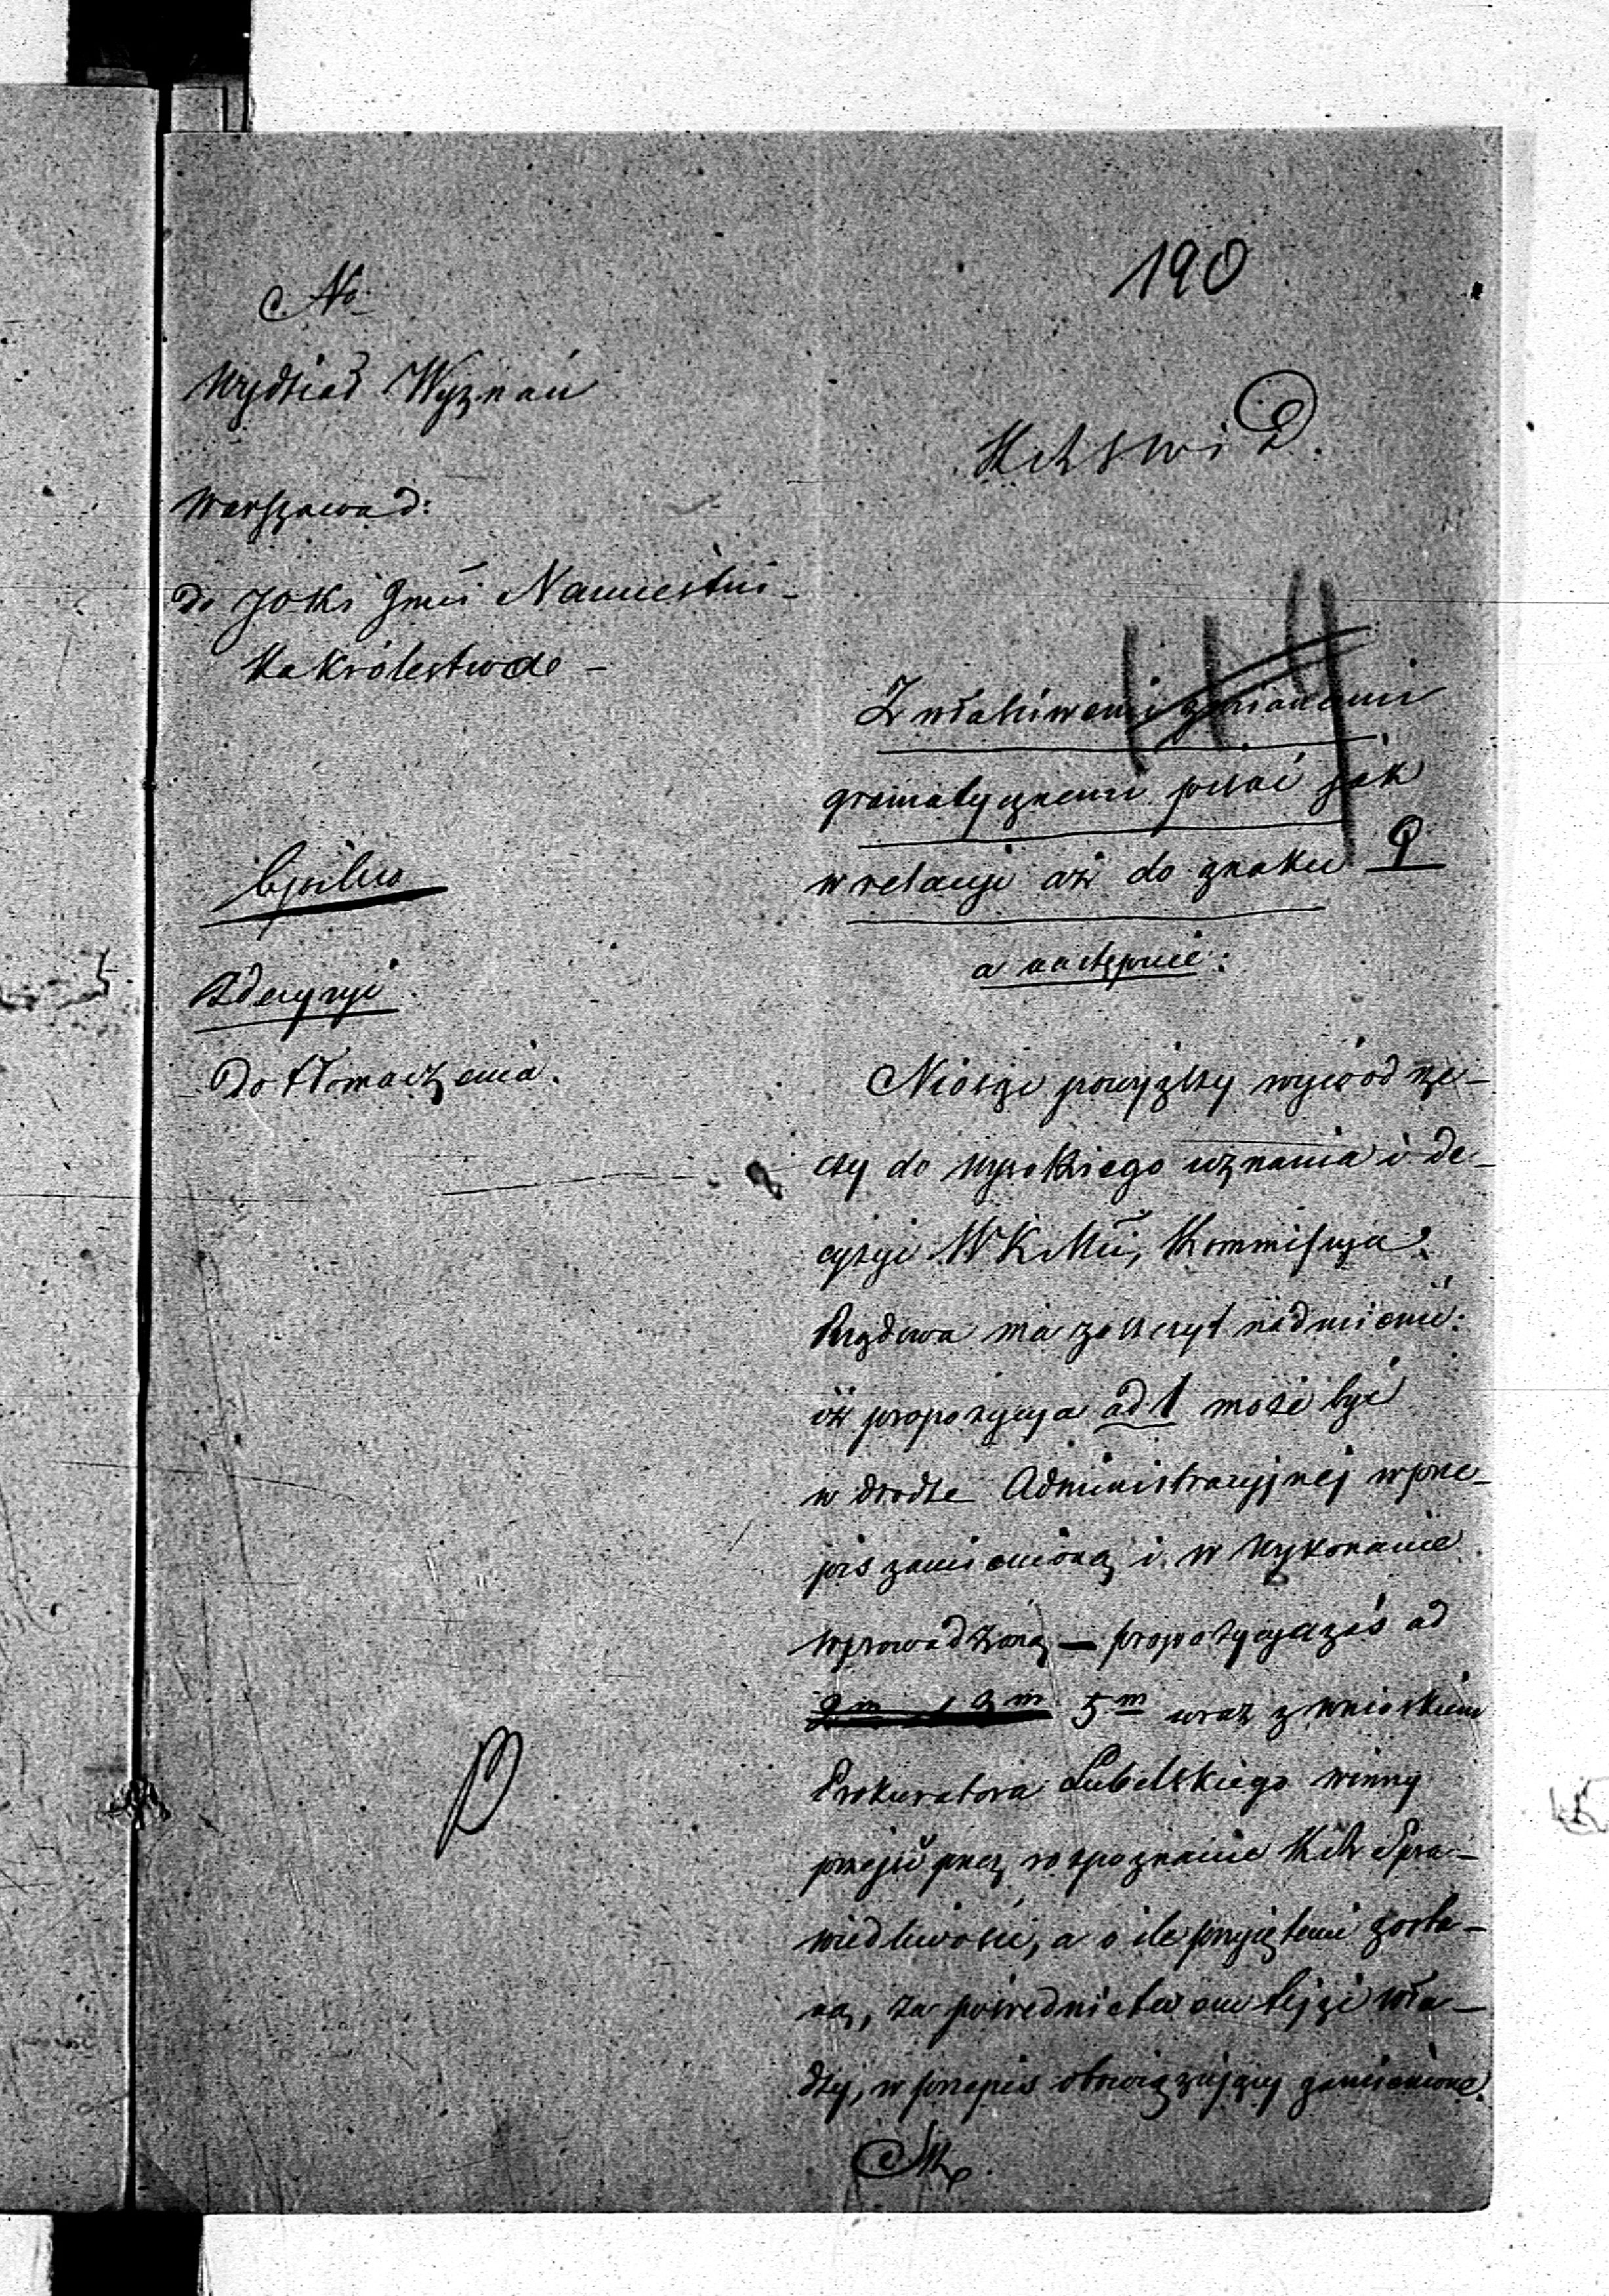 190
No
Wydział Wyznań
KRSWiD.
Warszawa d:
do JOXi Jmći Namiestni-
ka Królestwa do -
Z właściwemi zmianami
gramatycznemi pisać jak
w relacyi aż do znaku
a następnie:
Zdecyzyi
Do tłomaczenia.
Niosąc powyższy wywód rze-
czy do wysokiego uznania i de-
cyzyi WKMći, Kommissyja
Rządowa ma zaszczyt nadmienić:
iż propozycya ad 1 może być
w drodze Administracyjnej w prze-
pis zamienioną i w wykonanie
wprowadzoną — propozycya zaś ad
2m i 3m 5m wraz z wnioskiem
Prokuratora Lubelskiego winny
przejść przez rozpoznanie KR Spra-
wiedliwości, a o ile przyjętemi zosta-
ną, za pośrednictwem tejże Wła-
dzy, w przepis obowiązujący zamienione.